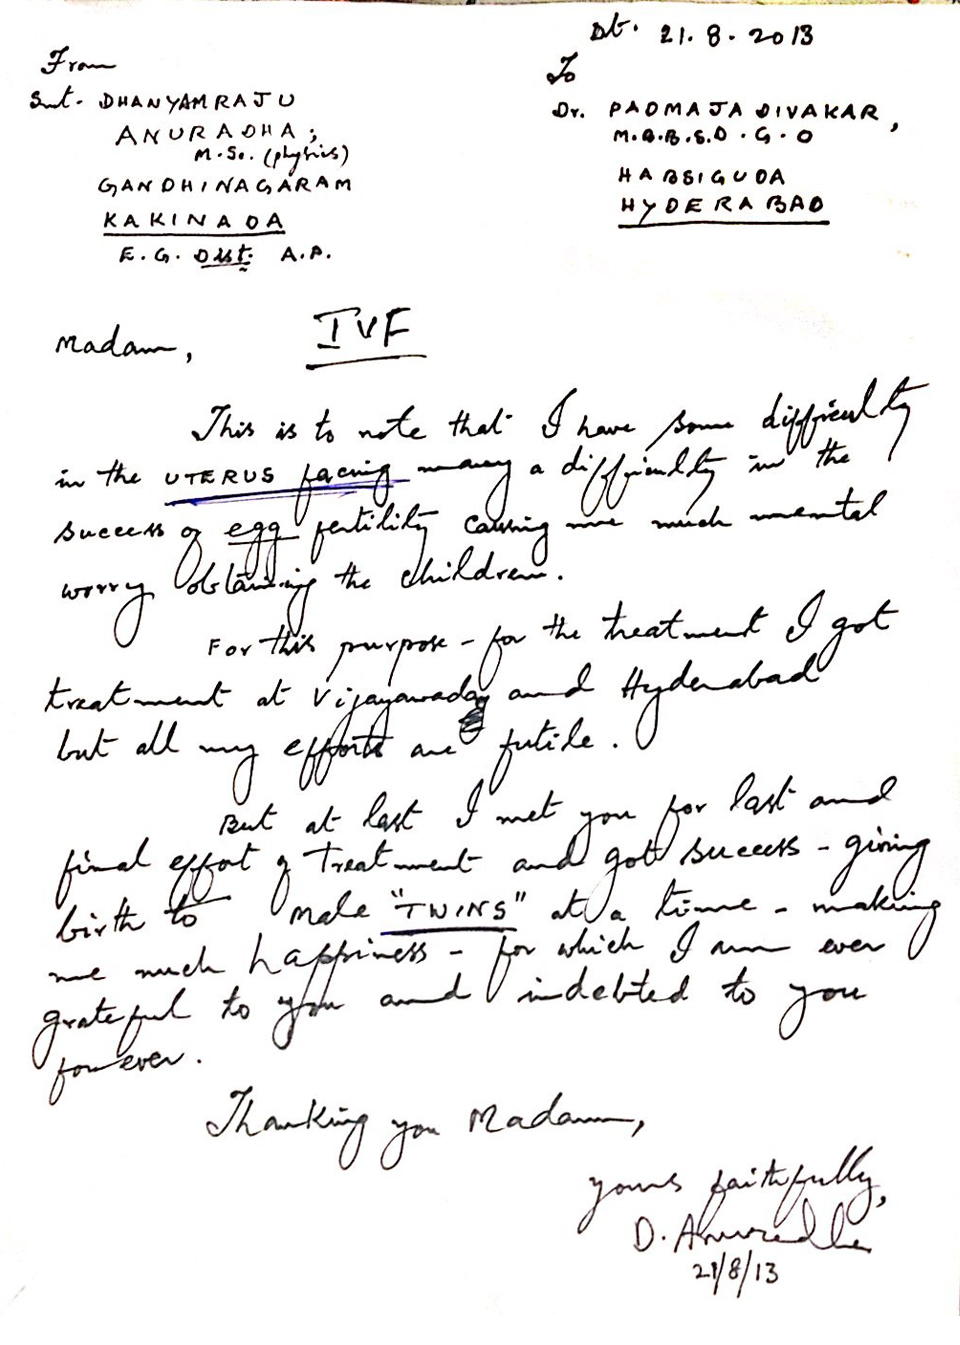 Dt. 21.8.2013
From
Smt. DHANYAMRAJU
ANURADHA;
M.Sc. (physics)
GANDHINAGARAM
KAKINADA
E.G. Dist. A.P.
To
Dr. PADMAJA DIVAKAR,
M.B.B.S.D.G.O
HABSIGUDA
HYDERABAD
Madam,
IVF
This is to note that I have some difficulty
in the UTERUS facing many a difficulty in the
success of egg fertility causing me much mental
worry obtaining the children.
For this purpose - for the treatment I got
treatment at Vijayawada and Hyderabad
but all my efforts are futile.
But at last I met you for last and
final effort of treatment and got success - giving
birth to male "TWINS" at a time - making
me much happiness - for which I am ever
grateful to you and indebted to you
forever.
Thanking you Madam,
yours faithfully,
D. Anuradha
21/8/13